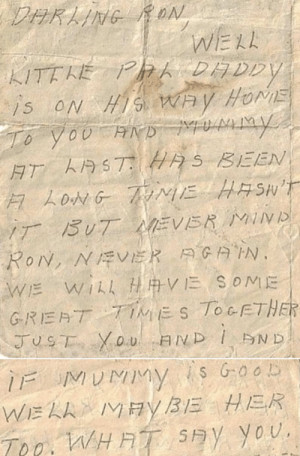 DARLING RON,
WELL
LITTLE PAL DADDY
IS ON HIS WAY HOME
TO YOU AND MUMMY
AT LAST. HAS BEEN
A LONG TIME HASN'T
IT BUT NEVER MIND
RON, NEVER AGAIN.
WE WILL HAVE SOME
GREAT TIMES TOGETHER
JUST YOU AND I AND
IF MUMMY IS GOOD
WELL MAYBE HER
TOO. WHAT SAY YOU.